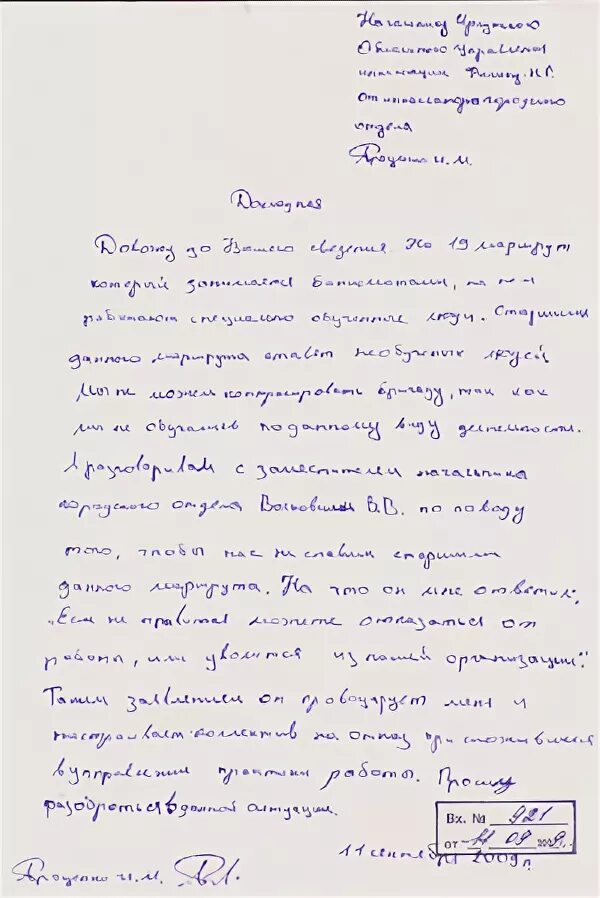 Начальнику Иркутского
Областного Управления
инкассации Филину Н.Г.
От инкассатора городского
отдела
Яроценко И.М.
Докладная
Довожу до Вашего сведения. На 19 маршрут
который занимается банкоматами, на нем
работают специально обученные люди. Старшими
данного маршрута ставят необученных людей
Мы не можем контролировать бригаду, так как
мы не обучались по данному виду деятельности.
Я разговаривал с заместителем начальника
городского отдела В.В. по поводу
того, чтобы нас не ставили старшими
данного маршрута. На что он мне ответил:
„Если не нравится можете отказаться от
работы, или уволится из нашей организации."
Таким заявлением он провоцирует меня и
настраивает коллектив на отказ при сложившейся
в управлении практики работы. Прошу
разобраться в данной ситуации.
Вх. № 921
от 11 09 2009г.
11 сентября 2009г.
Яроценко И.М.